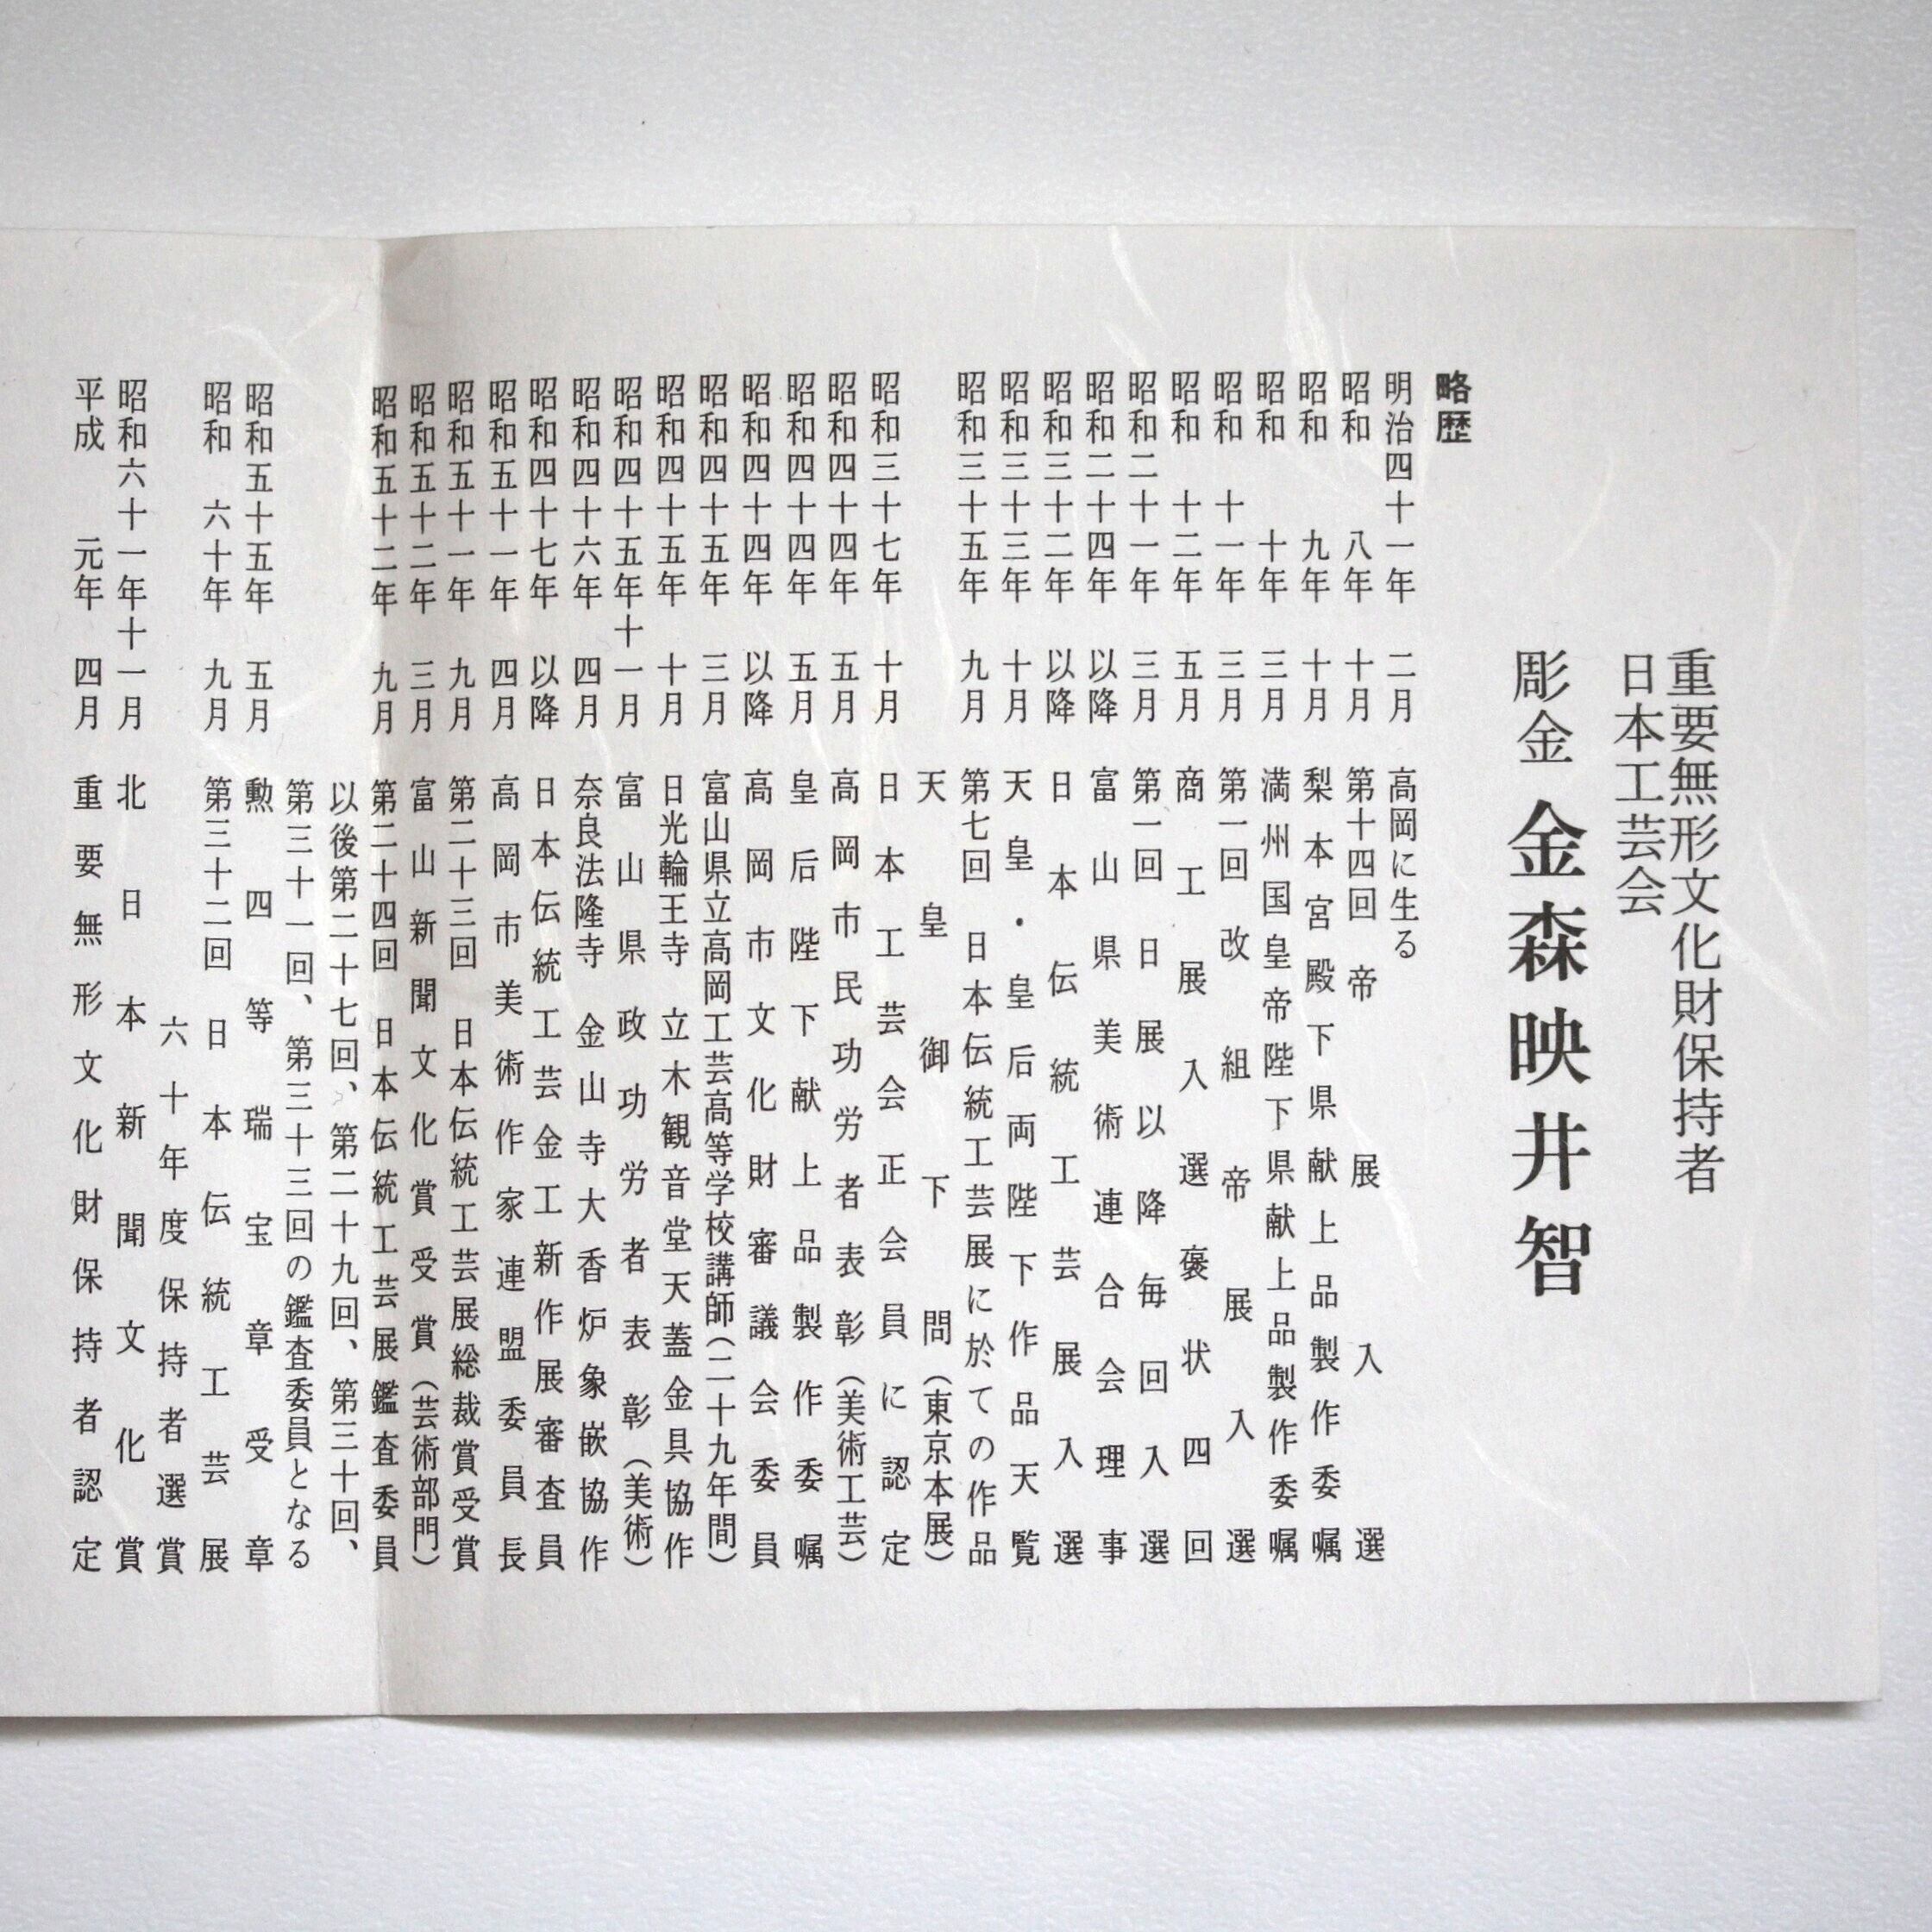 重要無形文化財保持者
日本工芸会
彫金 金森映井智
略歴
明治四十一年 二月 高岡に生る
昭和 八年 十月 第十四回 帝展入選
昭和 九年 十月 梨本宮殿下県献上品製作委嘱
昭和 十年 三月 満州国皇帝陛下県献上品製作委嘱
昭和 十一年 三月 第一回改組帝展入選
昭和 十二年 五月 商工展入選褒状四回
昭和二十一年 三月 第一回日展以降毎回入選
昭和二十四年 以降 富山県美術連合会理事
昭和三十二年 以降 日本伝統工芸展入選
昭和三十三年 十月 天皇・皇后両陛下作品天覧
昭和三十五年 九月 第七回 日本伝統工芸展に於ての作品
天皇御下問(東京本展)
昭和三十七年 十月 日本工芸会正会員に認定
昭和四十四年 五月 高岡市民功労者表彰(美術工芸)
昭和四十四年 五月 皇后陛下献上品製作委嘱
昭和四十四年 以降 高岡市文化財審議会委員
昭和四十五年 三月 富山県立高岡工芸高等学校講師(二十九年間)
昭和四十五年 十月 日光輪王寺 立木観音堂天蓋金具協作
昭和四十五年十一月 富山県政功労者表彰(美術)
昭和四十六年 四月 奈良法隆寺 金山寺大香炉象嵌協作
昭和四十七年 以降 日本伝統工芸金工新作展審査員
昭和五十一年 四月 高岡市美術作家連盟委員長
昭和五十一年 九月 第二十三回 日本伝統工芸展総裁賞受賞
昭和五十二年 三月 富山新聞文化賞受賞(芸術部門)
昭和五十二年 九月 第二十四回 日本伝統工芸展鑑査委員
以後第二十七回、第二十九回、第三十回、
第三十一回、第三十三回の鑑査委員となる
昭和五十五年 五月 勲四等瑞宝章受章
昭和 六十年 九月 第三十二回 日本伝統工芸展
六十年度保持者選賞
昭和六十一年十一月 北日本新聞文化賞
平成 元年 四月 重要無形文化財保持者認定